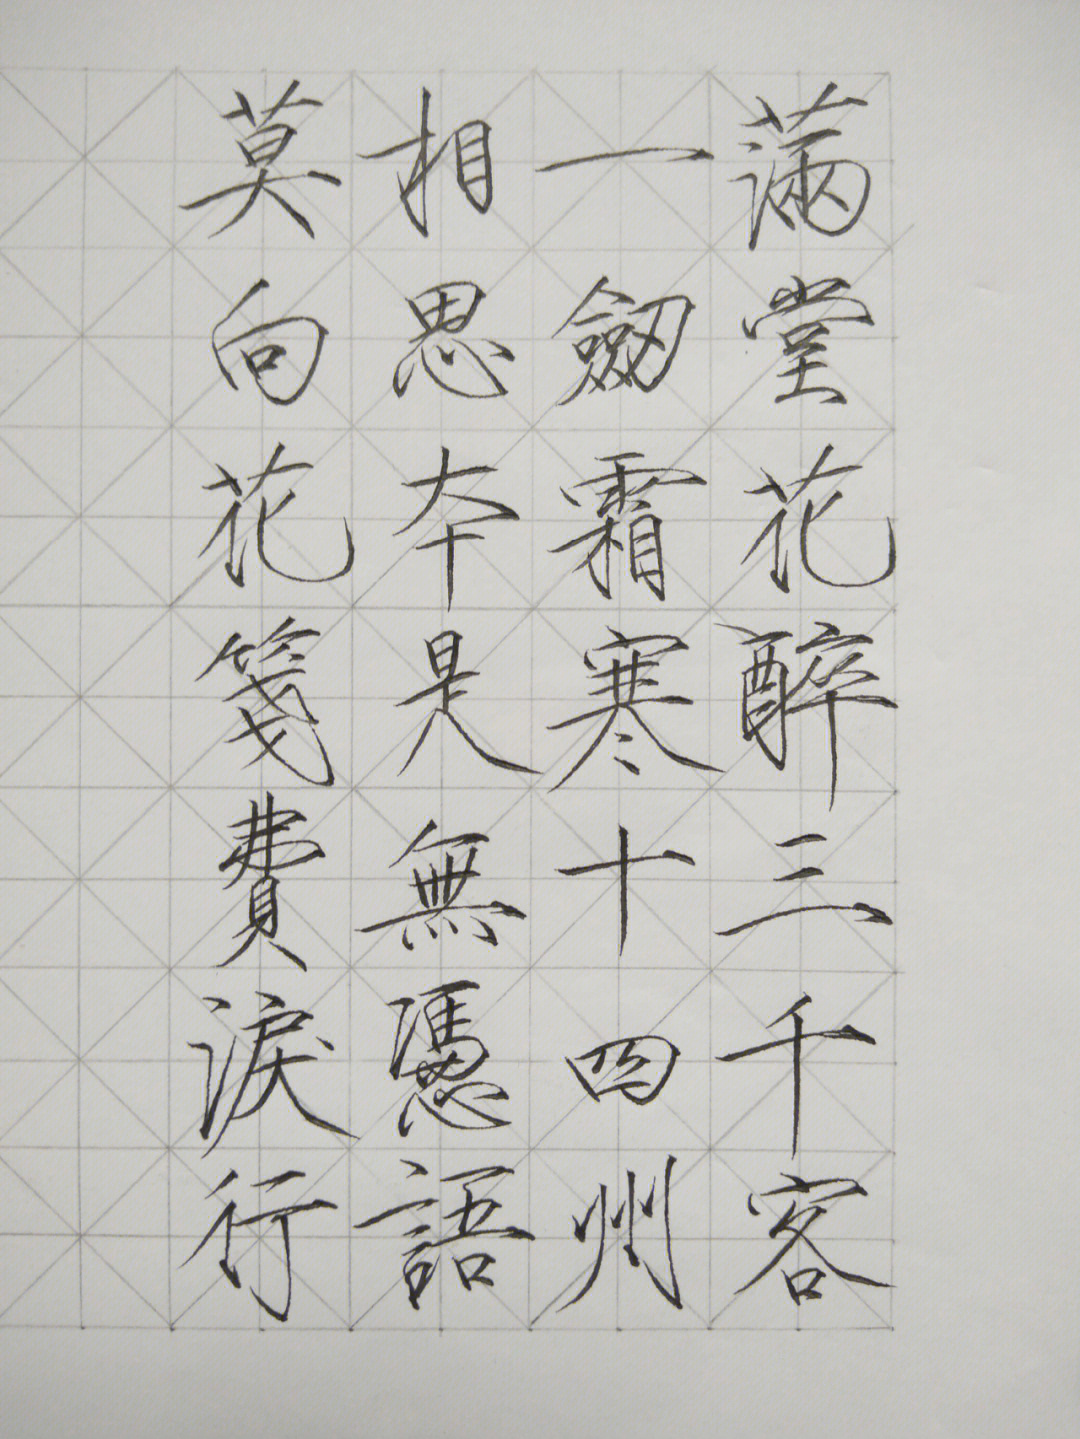 滿堂花醉三千客
一劔霜寒十四州
相思本是無憑語
莫向花箋費淚行